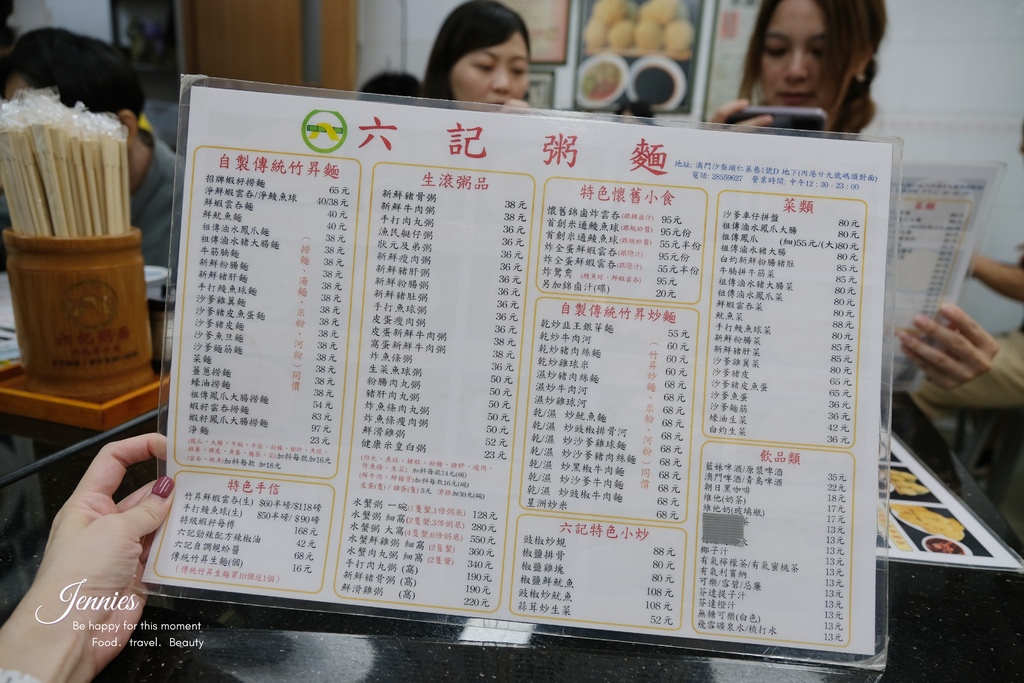 六記粥麵
地址: 澳門沙梨頭仁慕巷1號D 地下(內港廿九號碼頭對面)
電話: 28559627 營業時間: 中午12:30 - 23:00
自製傳統竹昇麵
招牌蝦籽撈麵 65元
淨鮮蝦雲吞/淨鯪魚球 40/38元
鮮蝦雲吞麵 40元
鮮魷魚麵 40元
祖傳滷水鳳爪麵 38元
祖傳滷水豬大腸麵 38元
牛筋腩麵 38元
新鮮粉腸麵 38元
新鮮豬肝麵 38元
手打鯪魚球麵 38元
沙爹雞翼麵 38元
沙爹豬皮魚蛋麵 38元
沙爹豬皮麵 38元
沙爹魚旦麵 38元
沙爹麵筋麵 38元
菜麵 38元
薑蔥撈麵 38元
蠔油撈麵 38元
祖傳鳳爪大腸撈麵 54元
蝦籽雲吞撈麵 83元
蝦籽鳳爪撈麵 97元
淨麵 23元
(撈麵、湯麵、米粉、河粉)同價
加料每款加16元
加料每款 加18元
特色手信
竹昇鮮蝦雲吞(生) $60半磅/$118磅
手打鯪魚球(生) $50半磅/$90磅
特級蝦籽每樽 168元
六記勁辣配方辣椒油 42元
六記自調蜆蚧醬 68元
傳統竹昇生麵(個) 16元
(傳統竹昇生麵買10個送1個)
生滾粥品
新鮮豬骨粥 38元
新鮮牛肉粥 38元
手打肉丸粥 36元
漁民艇仔粥 36元
狀元及弟粥 36元
新鮮瘦肉粥 36元
新鮮豬肝粥 36元
新鮮粉腸粥 36元
新鮮豬肚粥 36元
手打魚球粥 36元
皮蛋瘦肉粥 36元
皮蛋新鮮牛肉粥 36元
窩蛋新鮮牛肉粥 36元
炸魚條粥 36元
生菜魚球粥 36元
粉腸肉丸粥 50元
豬肝肉丸粥 50元
炸魚條肉丸粥 50元
炸魚條瘦肉粥 50元
鮮滑雞粥 52元
健康米皇白粥 23元
水蟹粥 一碗(1隻蟹,1倍粥底) 128元
水蟹粥 細窩(2隻蟹,3倍粥底) 280元
水蟹粥 大窩(4隻蟹,6倍粥底) 550元
水蟹鮮雞粥 細窩 (2隻蟹) 360元
水蟹肉丸粥 細窩 (2隻蟹) 340元
手打肉丸粥 (窩) 190元
新鮮豬骨粥 (窩) 190元
鮮滑雞粥 (窩) 220元
特色懷舊小食
懷舊錦鹵炸雲吞(跟錦鹵汁) 95元
首創米通鯪魚球(跟蜆蚧醬) 95元份
首創米通鯪魚球(跟蜆蚧醬) 55元半份
炸全蛋鮮蝦雲吞(跟喼汁) 95元份
炸全蛋鮮蝦雲吞(跟喼汁) 55元半份
炸鴛鴦(鯪魚球、鮮蝦雲吞) 95元
另加錦鹵汁(碟) 20元
自製傳統竹昇炒麵
乾炒韭王銀芽麵 55元
乾炒牛肉河 60元
乾炒豬肉絲麵 60元
乾炒雞球米 60元
濕炒豬肉絲麵 68元
濕炒牛肉河 68元
濕炒雞球河 68元
乾/濕 炒魷魚麵 68元
乾/濕 炒豉椒排骨河 68元
乾/濕 炒沙爹雞球麵 68元
乾/濕 炒沙爹豬肉絲麵 68元
乾/濕 炒黑椒牛肉麵 68元
乾/濕 炒沙爹牛肉麵 68元
乾/濕 炒豉椒牛肉麵 68元
星洲炒米 68元
(竹昇炒麵、米粉、河粉)同價
六記特色小炒
豉椒炒蜆 88元
椒鹽排骨 80元
椒鹽雞塊 80元
椒鹽鮮魷魚 108元
豉椒炒魷魚 108元
蒜茸炒生菜 52元
菜類
沙爹車仔拼盤 80元
祖傳滷水鳳爪大腸 80元
祖傳鳳爪 (細)55元/(大)80元
祖傳滷水豬大腸 80元
白灼新鮮粉腸豬肚 85元
牛腩拼牛筋菜 85元
祖傳滷水豬大腸菜 80元
祖傳滷水鳳爪菜 80元
鮮蝦雲吞菜 80元
魷魚菜 80元
手打鯪魚球菜 88元
新鮮粉腸菜 85元
新鮮豬肝菜 85元
沙爹雞翼菜 85元
沙爹豬皮 85元
沙爹豬皮魚蛋 65元
沙爹魚蛋 65元
沙爹麵筋 65元
蠔油生菜 42元
白灼生菜 36元
飲品類
藍妹啤酒/原漿啤酒 35元
澳門啤酒/青島啤酒 22元
朝日黑咖啡 18元
維他(奶茶) 17元
維他奶(玻璃瓶) 13元
椰子汁 13元
有氣檸檬茶/有氣蜜桃茶 13元
有氣利賓納 13元
可樂/雪碧/忌廉 13元
芬達提子汁 13元
芬達橙汁 13元
無糖可樂(白色) 13元
飛雪礦泉水/橫打水 13元
Jennies
Be happy for this moment
Food. travel. Beauty